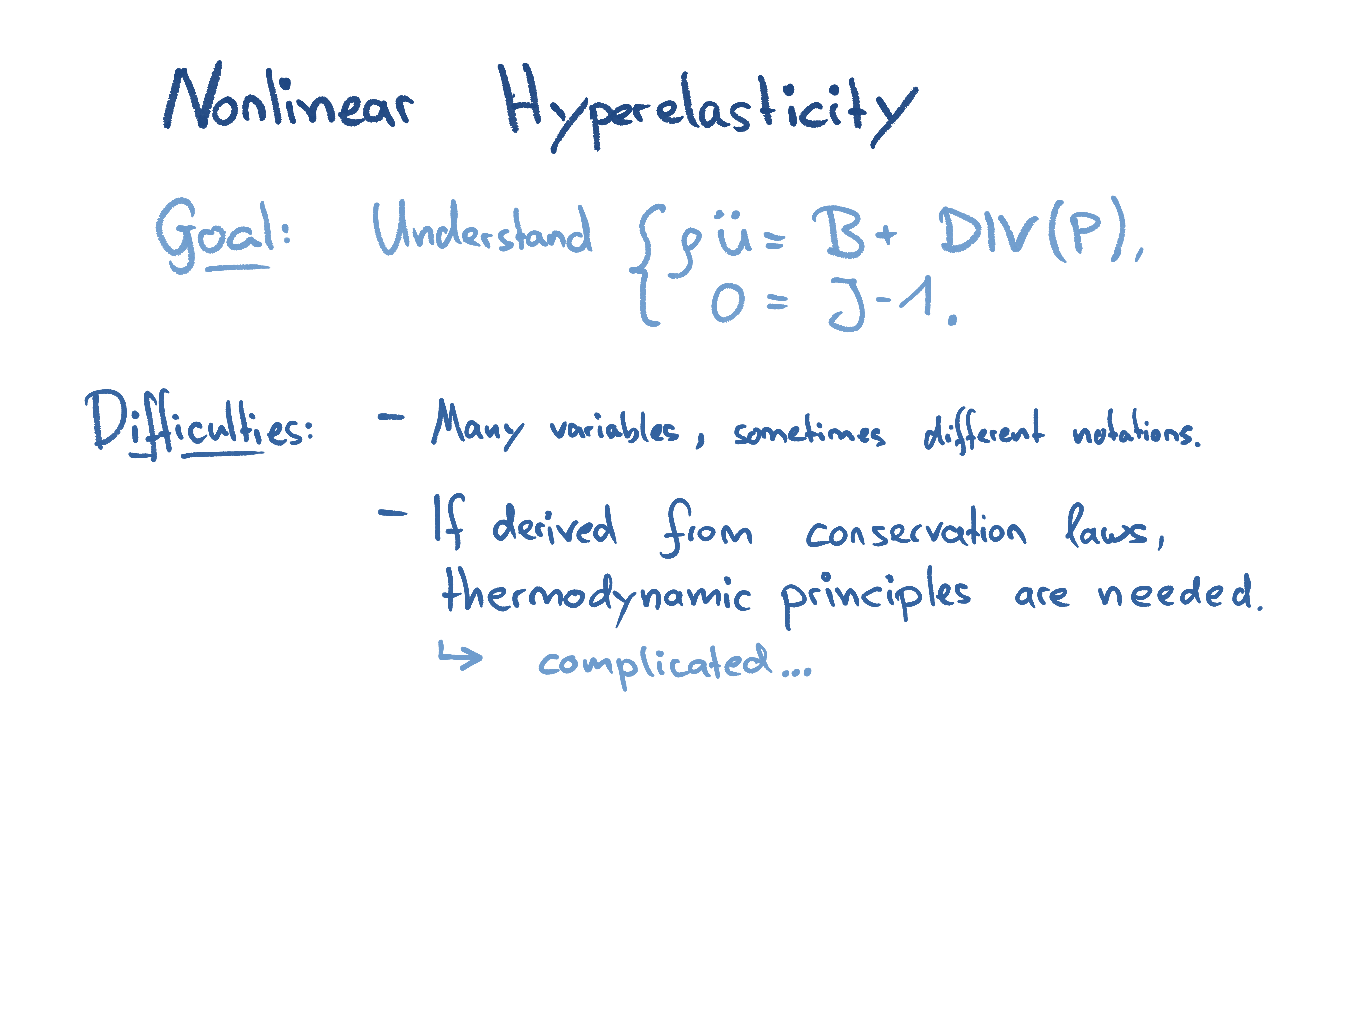 Nonlinear Hyperelasticity
Goal: Understand { ρ ü = B + DIV(P),
0 = J - 1.
Difficulties: - Many variables, sometimes different notations.
- If derived from conservation laws,
thermodynamic principles are needed.
↳ complicated...